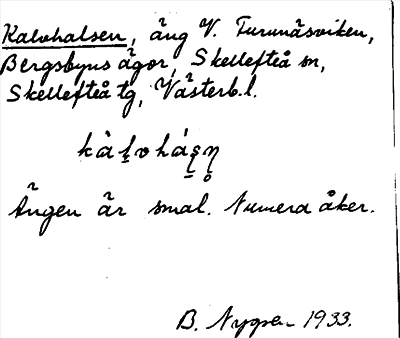 Kalvhalsen, äng V. Turunäsviken,
Bergsbyns ägor, Skellefteå sn,
Skellefteå tg, Västerb.l.
Ängen är smal. Numera åker.
B. Nygren 1933.